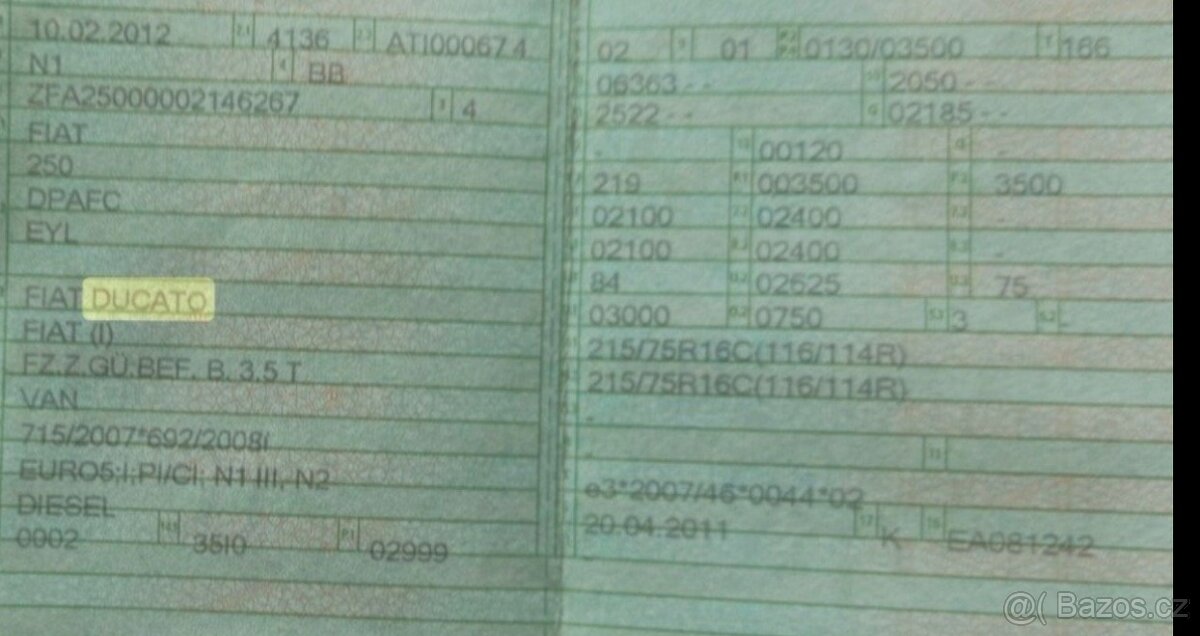 10.02.2012 2.1 4136 2.2 ATI00067 4
N1 4 BB
ZFA25000002146267 3 4
FIAT
250
DPAFC
EYL
FIAT DUCATO
FIAT (I)
FZ.Z.GÜ.BEF. B. 3,5 T
VAN
715/2007*692/2008I
EURO5;I;PI/CI; N1 III, N2
DIESEL
0002 14.1 35I0 P.1 02999
02 9 01 P.2 P.4 0130/03500 T 166
06363 - - 2050 - -
2522 - - G 02185 - -
- 13 00120 Q -
219 F.1 003500 F.2 3500
02100 7.2 02400 7.3 -
02100 8.2 02400 8.3 -
84 U.2 02625 U.3 75
03000 O.2 0750 S.1 3 S.2 -
215/75R16C(116/114R)
215/75R16C(116/114R)
-
- 11
e3*2007/46*0044*02
20.04.2011 17 K 16 EA081242
-
@( Bazos.cz